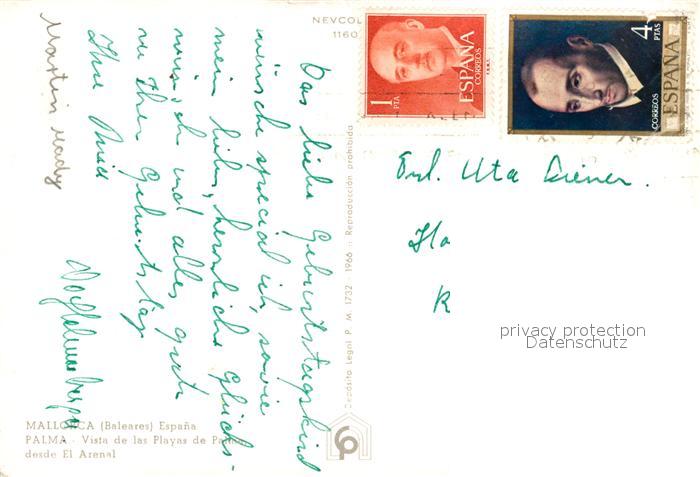 NEVCOL
1160
1
PTA
ESPAÑA
CORREOS
4
PTAS
CORREOS
ESPAÑA
Das liebe Geburtstagskind
wünsche special ich, sowie
mein lieber, herzliche Glücks-
wünsche und alles gute
zu Ihren Geburtstag
Ihre
Martin
Frl. Uta Diener.
Ho
R
privacy protection
Datenschutz
Depósito Legal P. M. 1732 - 1966 :: Reproducción prohibida
MALLORCA (Baleares) España
PALMA - Vista de las Playas de Palma
desde El Arenal